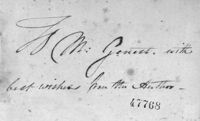 Mr. Genet. with
best wishes from the Author –
47768